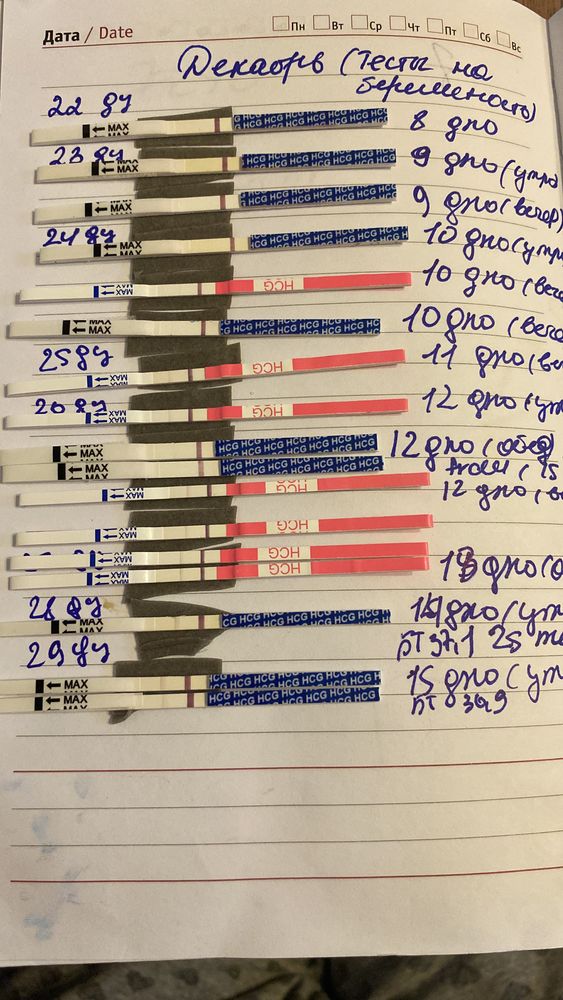 Дата / Date Пн Вт Ср Чт Пт Сб Вс
Декабрь (Тесты на
беременность)
22 ДЦ
MAX HCG HCG HCG HCG HCG HCG 8 дпо
23 ДЦ MAX HCG HCG HCG HCG HCG HCG 9 дпо (утро
MAX HCG HCG HCG HCG HCG HCG 9 дпо (вечер)
24 ДЦ MAX HCG HCG HCG HCG HCG HCG 10 дпо (утр
MAX HCG 10 дпо (веч
MAX HCG HCG HCG HCG HCG HCG 10 дпо (вече
25 ДЦ MAX HCG 11 дпо (ве
26 ДЦ MAX HCG 12 дпо (ут
MAX HCG HCG HCG HCG HCG HCG 12 дпо (обед)
MAX HCG HCG HCG HCG HCG HCG
MAX HCG 12 дпо (в
MAX HCG
MAX HCG
MAX HCG 13 дпо (
28 ДЦ MAX HCG HCG HCG HCG HCG HCG 14 дпо (ут
29 ДЦ 25
MAX HCG HCG HCG HCG HCG HCG 15 дпо (ут
MAX HCG HCG HCG HCG HCG HCG